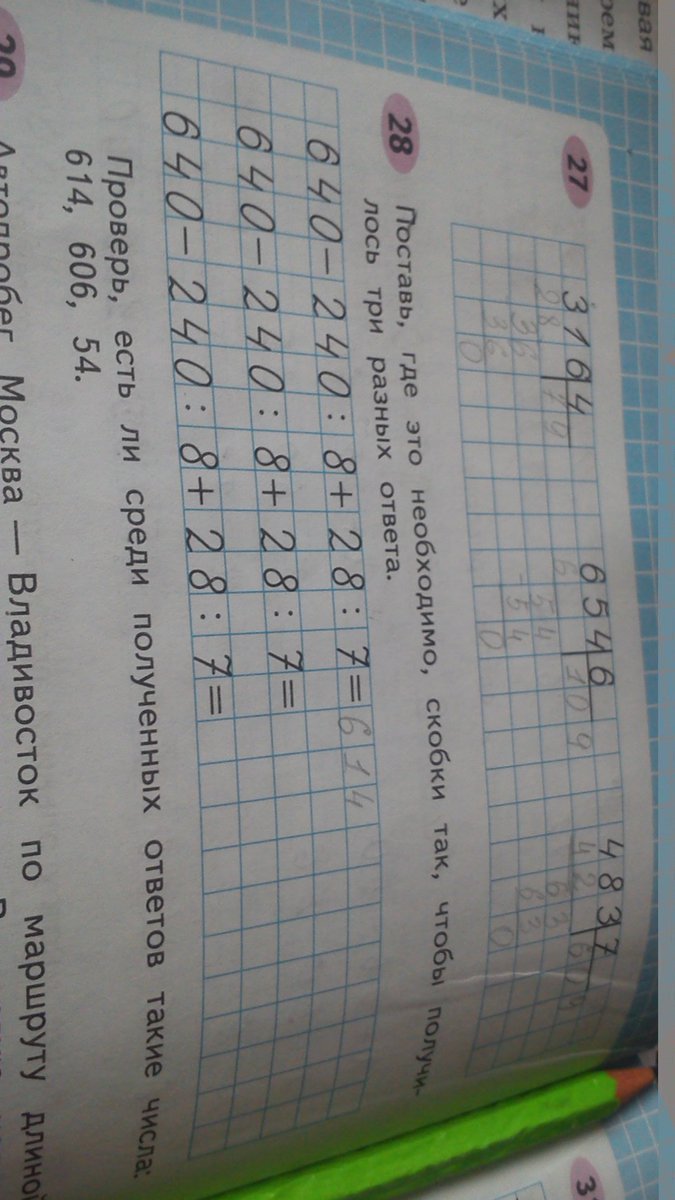 27
316|4 654|6 483|7
28 79 6 109 42 69
36 54 63
36 -54 63
0 0 0
28 Поставь, где это необходимо, скобки так, чтобы получи-
лось три разных ответа.
640-240:8+28:7=614
640-240:8+28:7=
640-240:8+28:7=
Проверь, есть ли среди полученных ответов такие числа:
614, 606, 54.
Автопробег Москва — Владивосток по маршруту длиной